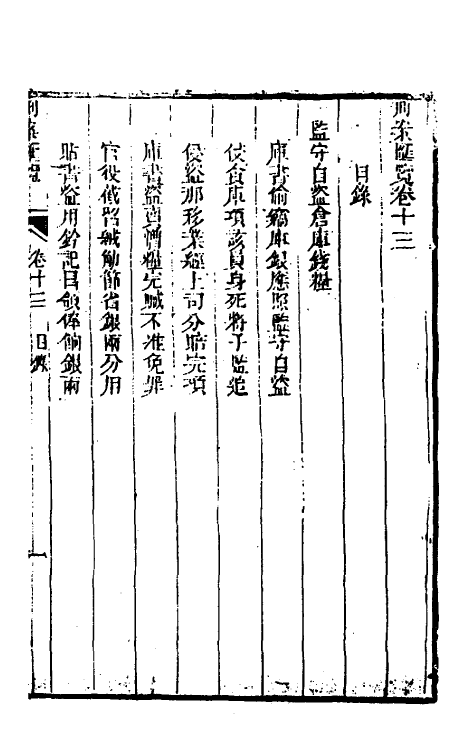 刑案匯覽卷十三
目錄
監守自盜倉庫錢糧
庫書偷竊庫銀應照監守自盜
侵蝕庫項該員身死將子監追
侵盜那移業經上司分賠完項
庫書盜賣糟糧完贓不准免罪
官役截留減節省銀兩分用
貼書盜用鈐記冒領俸餉銀兩
刑案匯覽
卷十三 目錄
一